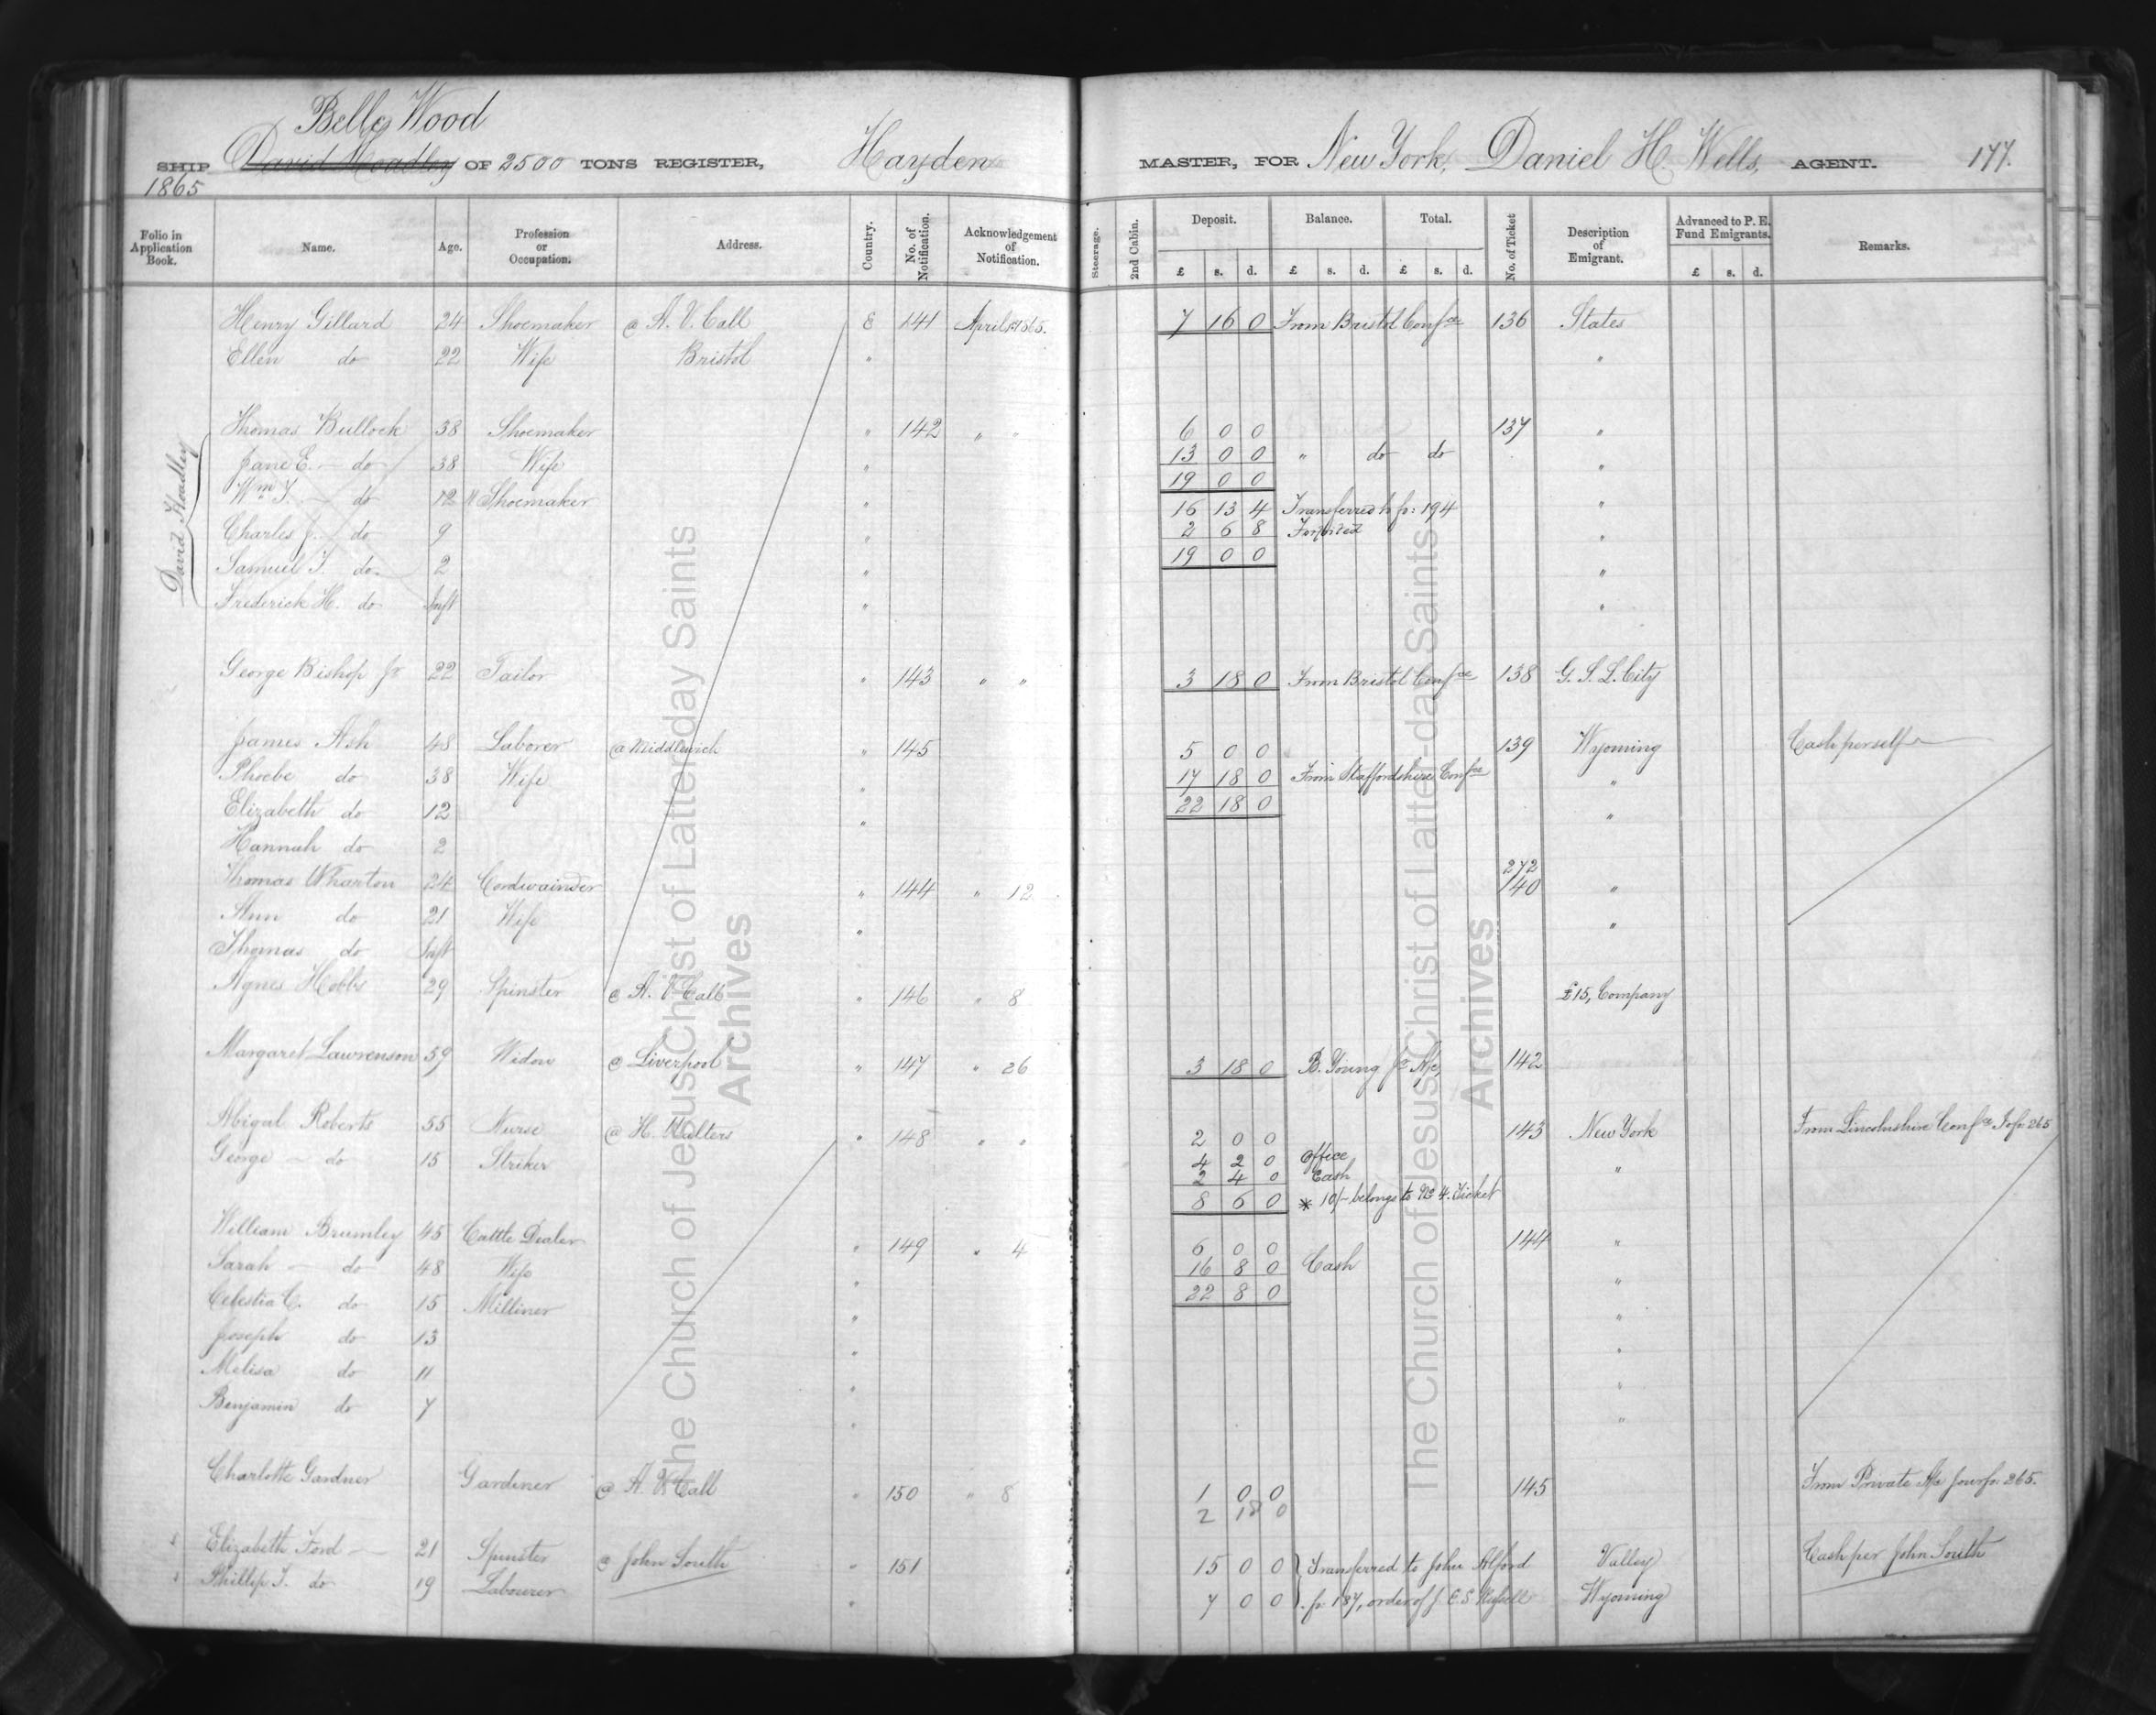 Belle Wood
SHIP David Hoadley OF 2500 TONS REGISTER, Hayden MASTER, FOR New York, Daniel H. Wells, AGENT. 177.
1865
Folio in Application Book. Name. Age. Profession or Occupation. Address. Country. No. of Notification. Acknowledgement of Notification. Steerage. 2nd Cabin. Deposit. Balance. Total. No. of Ticket Description of Emigrant. Advanced to P. E. Fund Emigrants. Remarks.
£ s. d. £ s. d. £ s. d. £ s. d.
Henry Gillard 24 Shoemaker @ A. V. Call 8 141 April 1865. 7 16 0 From Bristol Confce 136 States
Ellen do 22 Wife Bristol " "
David Hoadley
Thomas Bullock 38 Shoemaker " 142 " " 6 0 0 137 "
Jane E. do 38 Wife " 13 0 0 " do do "
19 0 0
Wm. T. do 12 Shoemaker " 16 13 4 Transferred to fo: 194 "
Charles J. do 9 " 2 6 8 Forfeited "
Samuel T. do 2 " 19 0 0 "
Frederick H. do Inft " "
George Bishop Jr 22 Tailor " 143 " " 3 18 0 From Bristol Confce 138 G. S. L. City
James Ash 48 Laborer @ Middlewich " 145 5 0 0 139 Wyoming Cash per self
Phoebe do 38 Wife " 17 18 0 From Staffordshire Confce "
Elizabeth do 12 " 22 18 0 "
Hannah do 2
272
Thomas Wharton 24 Cordwainder " 144 " 12 140 "
Ann do 21 Wife " "
Thomas do Inft
Agnes Hobbs 29 Spinster @ A. V. Call " 146 " 8 £15, Company
Margaret Lawrenson 59 Widow @ Liverpool " 147 " 26 3 18 0 B. Young Jr A/c, 142
Abigal Roberts 55 Nurse @ H. Walters " 148 " " 2 0 0 143 New York From Lincolnshire Confce Jo fo 265
George do 15 Striker 4 2 0 Office "
2 4 0 Cash
8 6 0 * 10/- belongs to No 4. Ticket
William Brumley 45 Cattle Dealer " 149 " 4 6 0 0 144 "
Sarah do 48 Wife " 16 8 0 Cash "
Celestia C. do 15 Milliner " 22 8 0 "
Joseph do 13 " "
Melisa do 11 " "
Benjamin do 7 " "
Charlotte Gardner Gardiner @ A. V. Call " 150 " 8 1 0 0 145 From Private A/c Jour fo: 265.
2 18 0
Elizabeth Ford 21 Spinster @ John South " 151 15 0 0 Transferred to John Alford Valley Cash per John South
Phillip T. do 19 Labourer " 7 0 0 fo. 187, order of J. E. S. Russell Wyoming
The Church of Jesus Christ of Latter-day Saints
Archives
The Church of Jesus Christ of Latter-day Saints
Archives